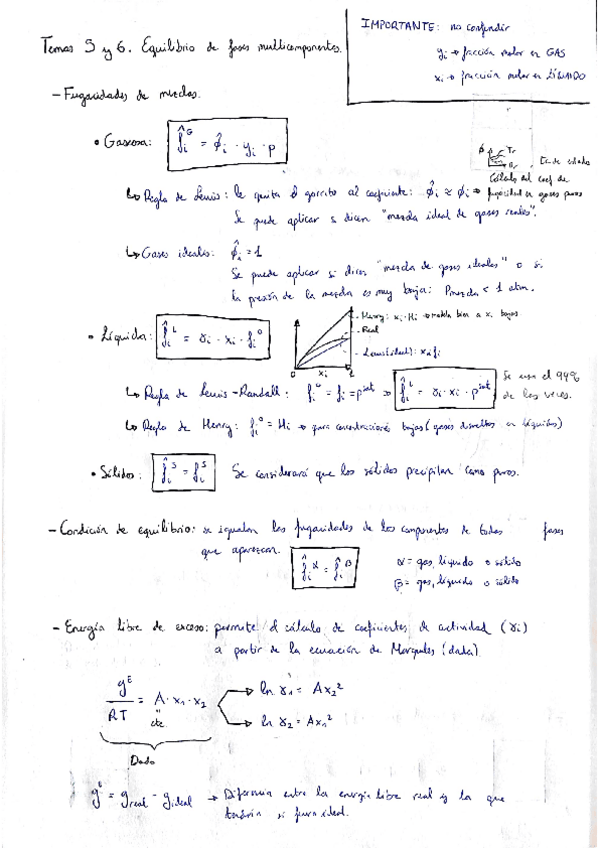 IMPORTANTE: no confundir
yi → fracción molar en GAS
xi → fracción molar en LÍQUIDO
Temas 5 y 6. Equilibrio de fases multicomponentes.
- Fugacidades de mezclas.
• Gaseosa: f̂iᴳ = ϕ̂i · yi · p
ϕ Tr
Cálculo del coef de
fugacidad en gases puros
↳ Regla de Lewis: le quita el gorrito al coeficiente: ϕ̂i ≈ ϕi ⇒
Se puede aplicar si dicen "mezcla ideal de gases reales".
↳ Gases ideales: ϕ̂i = 1
Se puede aplicar si dicen "mezcla de gases ideales" o si
la presión de la mezcla es muy baja: Pmezcla < 1 atm.
• Líquida: f̂iᴸ = γi · xi · fi⁰
Henry: xi · Hi → modela bien a xi bajas
Real
Lewis (ideal): xi fi
0 xi 1
↳ Regla de Lewis-Randall: fi⁰ = fi = pˢᵃᵗ ⇒ f̂iᴸ = γi · xi · pˢᵃᵗ
Se usa el 99%
de las veces.
↳ Regla de Henry: fi⁰ = Hi → para concentraciones bajas (gases disueltos en líquidos)
• Sólidos: f̂iˢ = fiˢ Se considerará que los sólidos precipitan como puros.
- Condición de equilibrio: se igualan las fugacidades de los componentes de todas fases
que aparezcan. f̂iᵅ = f̂iᵝ
α = gas, líquido o sólido
β = gas, líquido o sólido
- Energía libre de exceso: permite el cálculo de coeficientes de actividad (γi)
a partir de la ecuación de Margules (dada)
gᴱ/RT = A · x1 · x2
ln γ1 = Ax2²
ln γ2 = Ax1²
cte
Dado
gᴱ = greal - gideal → Diferencia entre la energía libre real y la que
tendría si fuera ideal.